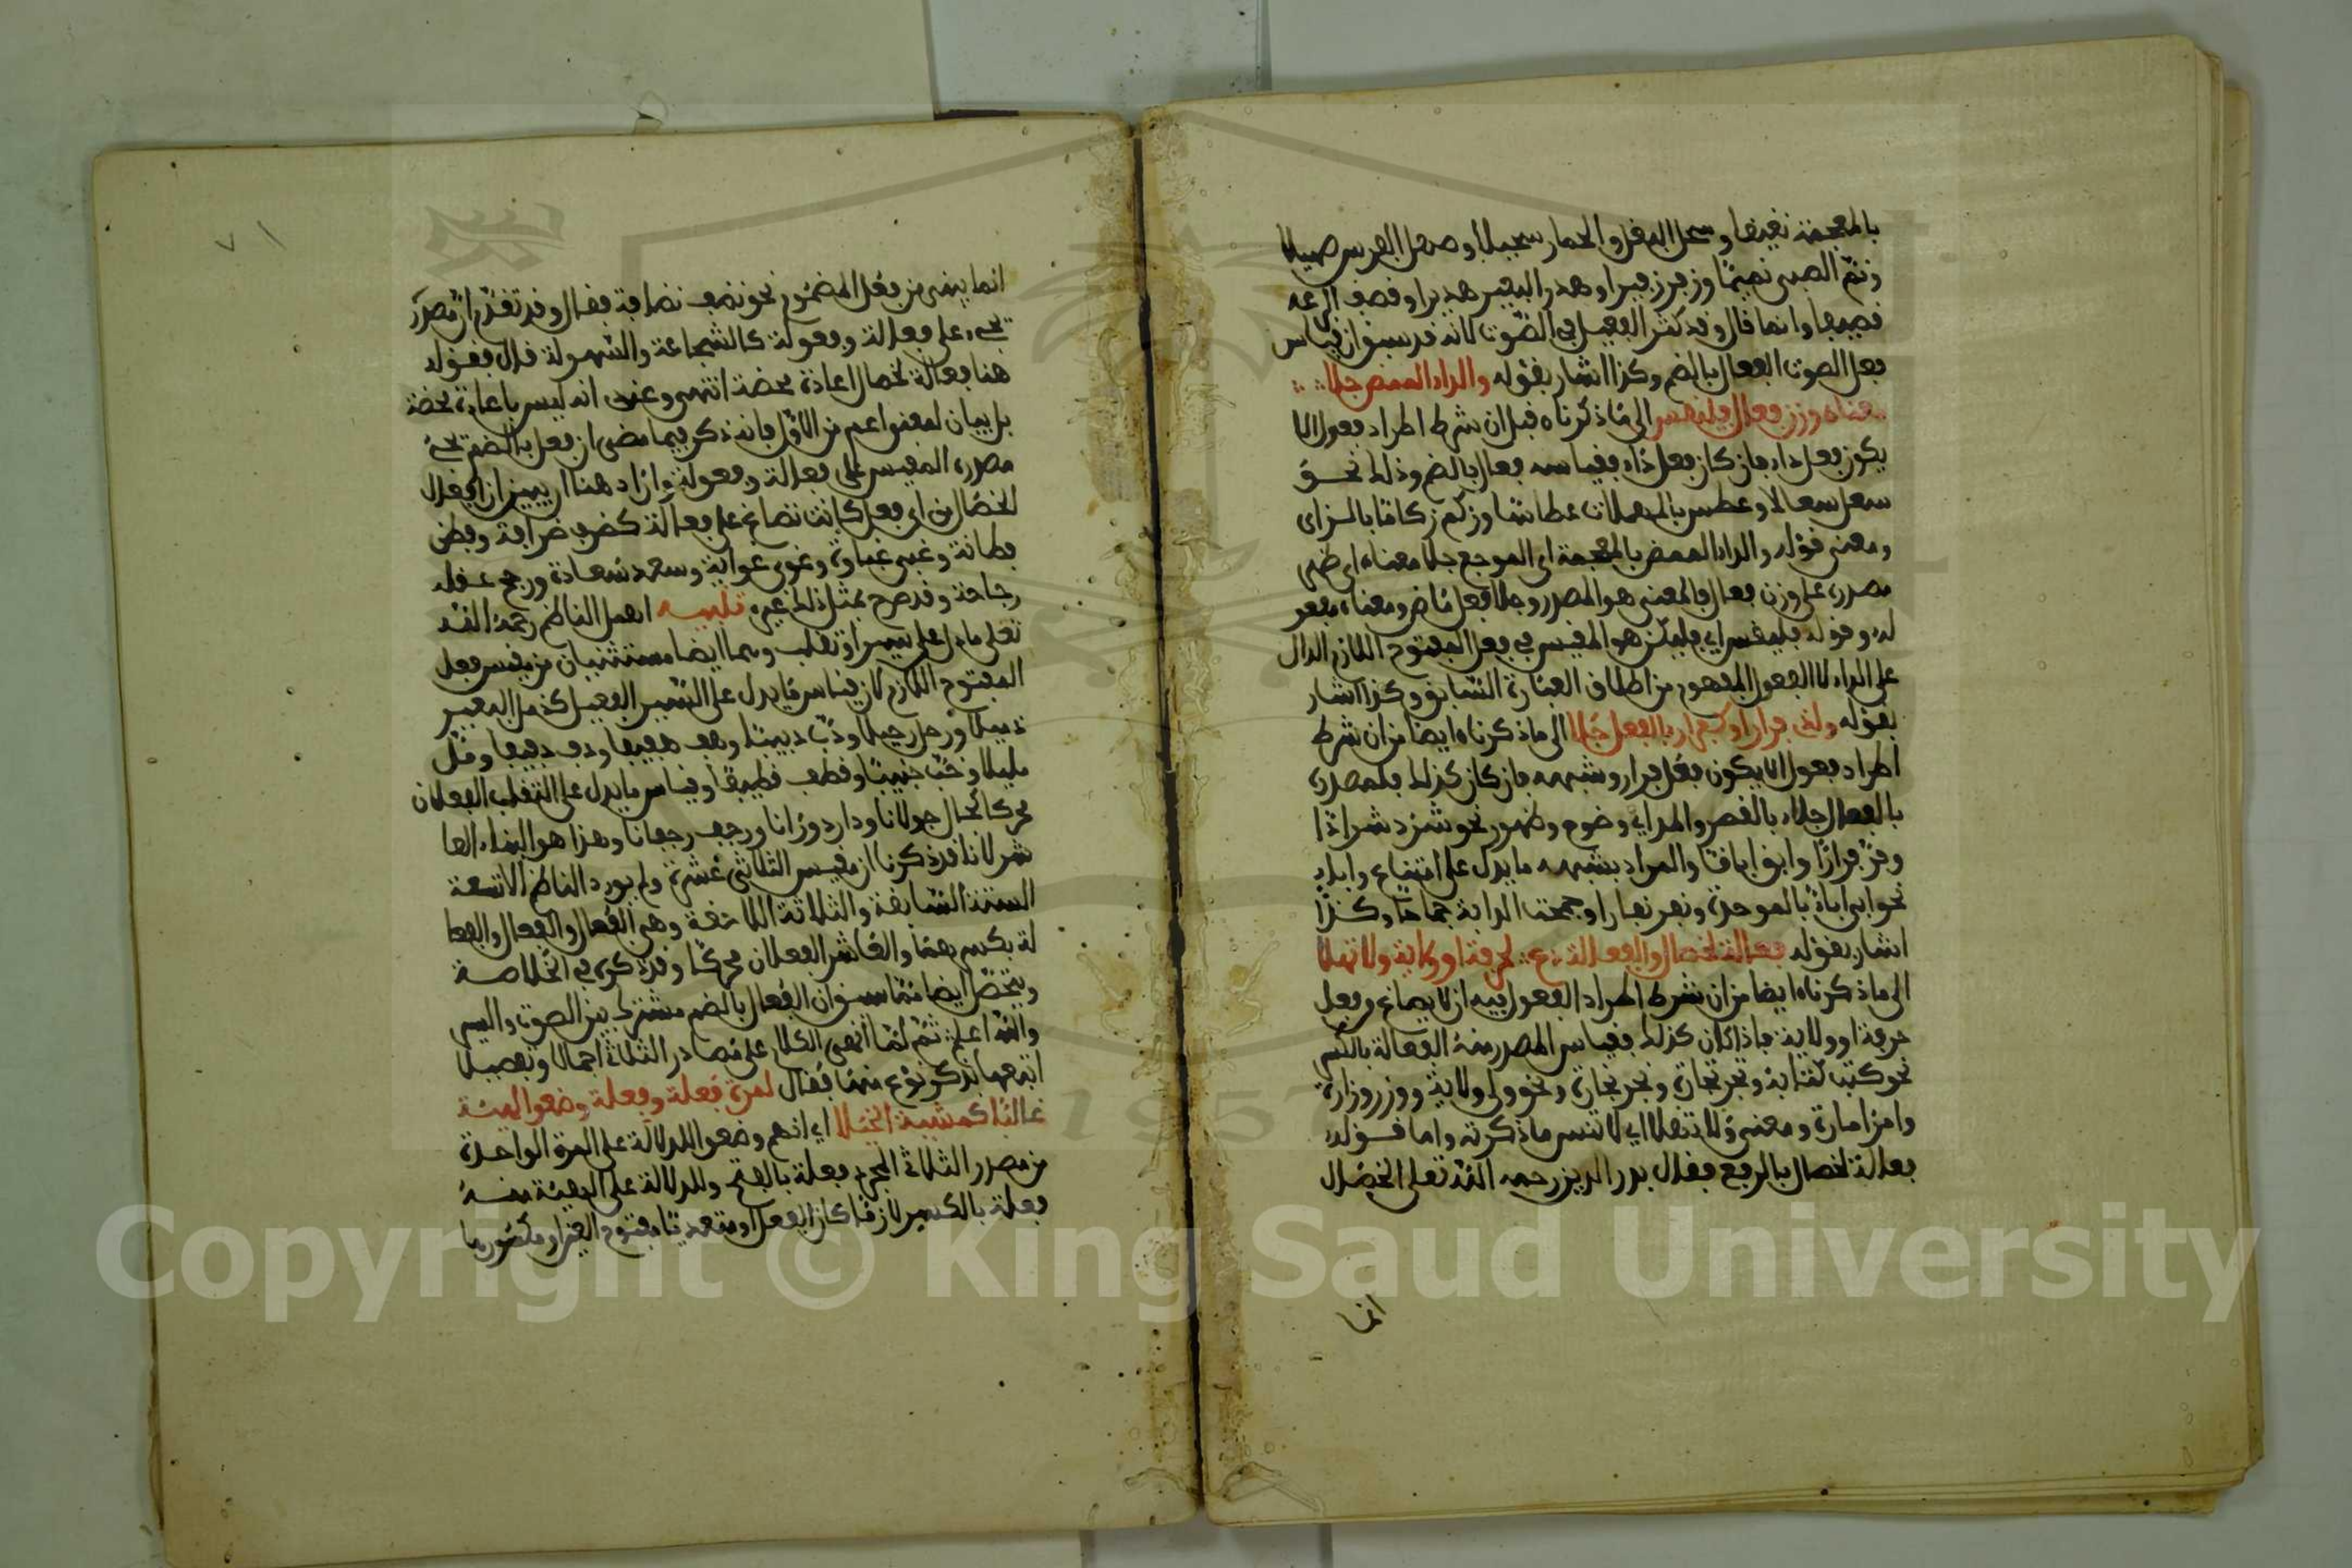 بالمعجمة نغيقا وسحل البغل والحمار سحيلا وصهل الفرس صهيلا
ونئم الصبى نئيما وزفر زفيرا وهدر البعير هديرا وقصف الرعد
قصيفا وانما قال وقد كثر الفعيل في الصوت لانه قد سبق ان قياس
فعل الصوت الفعال بالضم وكذا اشار بقوله والداء الممض جلا
معناه وزن فعال فليقس الى ما ذكرناه قبل ان شرط اطراد فعول الا
يكون فعل داء فان كان فعل داء فقياسه فعال بالضم وذلك نحو
سعل سعالا وعطس بالمهملات عطاسا وزكم زكاما بالزاى
ومعنى قوله والداء الممض بالمعجمة اى الموجع جلا معناه اى ظهر
مصدره على وزن فعال فالمعنى هو المصدر وجلا فعل ماض ومعناه مفعو
له وقوله فليقس اي فليكن هو المقيس في فعل المفتوح اللازم الدال
على الداء لا الفعول المفهوم من اطلاق العبارة السابق وكذا اشار
بقوله ولذى فرار او كفرار بالفعال جلا الى ما ذكرناه ايضا من ان شرط
اطراد فعول الا يكون فعل فرار وشبهه فان كان كذلك فلمصدره
بالفعال جلاء بالقصر والمد اي وضوح وظهور نحو شرد شرادا
وفر فرارا وابق اباقا والمراد بشبهه ما يدل على امتناع واباء
نحو ابى اباء بالموحدة ونفر نفارا وجمحت الدابة جماحا وكذا
اشار بقوله فعالة لخصال والفعالة دع لحرفة او ولاية ولا تهلا
الى ما ذكرناه ايضا من ان شرط اطراد الفعول فيه ان لا يصاغ من فعل
حرفة او ولاية فاذا كان كذلك فقياس المصدر منه الفعالة بالكسر
نحو كتب كتابة وتجر تجارة ونجر نجارة ونحو ولى ولاية ووزر وزارة
وامر امارة ومعنى ولا تهلا اي لا تنس ما ذكرته واما قوله
فعالة لخصال بالرفع فقال بدر الدين رحمه الله تعلى الخصال
انما
انما يبنى من فعل المضموم نحو نضف نضافة فقال وقد تقدم ان مصدره
يجيء على فعالة وفعولة كالشجاعة والسهولة قال فقوله
هنا فعالة لخصال اعادة محضة انتهى وعندى انه ليس باعادة محضة
بل بيان لمعنى اعم من الاول فانه ذكر فيما مضى ان فعل بالضم يجئ
مصدره المقيس على فعالة وفعولة واراد هنا ان يبين ان افعال
الخصال من اي فعل كانت تصاغ على فعالة كضرف ضرافة وفطن
فطانة وغبى غباوة وغوى غواية وسعد سعادة ورجح عقله
رجاحة وقد صرح بمثل ذلك غيره تنبيه اهمل الناظم رحمه الله
تعلى ما دل على سير او تقلب وهما ايضا مستثنيان من مقيس فعل
المفتوح اللازم لان قياس ما يدل على السير الفعيل كذمل البعير
ذميلا ورحل رحيلا ودب دبيبا وهف هفيفا ودف دفيفا ومل
مليلا وخب خبيبا وقطف قطيفا وقياس ما يدل على التقلب الفعلان
محركا كجال جولانا ودار دورانا ورجف رجفانا وهذا هو البناء العا
شر لانا قد ذكرنا ان مقيس الثلاثى عشرة ولم يورد الناظم الا تسعة
الستة السابقة والثلاثة اللاحقة وهى الفعال والفعال والفعا
لة بكسرهما والعاشر الفعلان محركا وقد ذكره في الخلاصة
ويتخص ايضا مما سبق ان الفعال بالضم مشترك بين الصوت والسير
والله اعلم ثم لما انهى الكلام على مصادر الثلاثى اجمالا وتفصيلا
اتبعها بذكر نوع منها فقال لمرة فعلة وفعلة وضعوا لهيئة
غالبا كمشية الخيلا اي انهم وضعوا للدلالة على المرة الواحدة
من مصدر الثلاثى المجرد فعلة بالفتح وللدلالة على الهيئة منه
فعلة بالكسر لازما كان الفعل او متعديا مفتوح العين او مكسورها
Copyright © King Saud University
1957